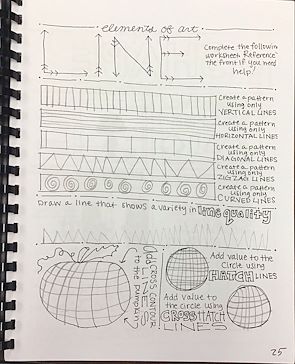 elements of art
LINE
Complete the following
worksheet. Reference
the front if you need
help!
Create a pattern
using only
VERTICAL LINES
Create a pattern
using only
HORIZONTAL LINES
Create a pattern
using only
DIAGONAL LINES
Create a pattern
using only
ZIGZAG LINES
Create a pattern
using only
CURVED LINES
Draw a line that shows a variety in line quality
Add CROSS CONTOUR
LINES
to the pumpkin
Add value to
the circle using
HATCH LINES
Add value to
the circle using
CROSS HATCH
LINES
25